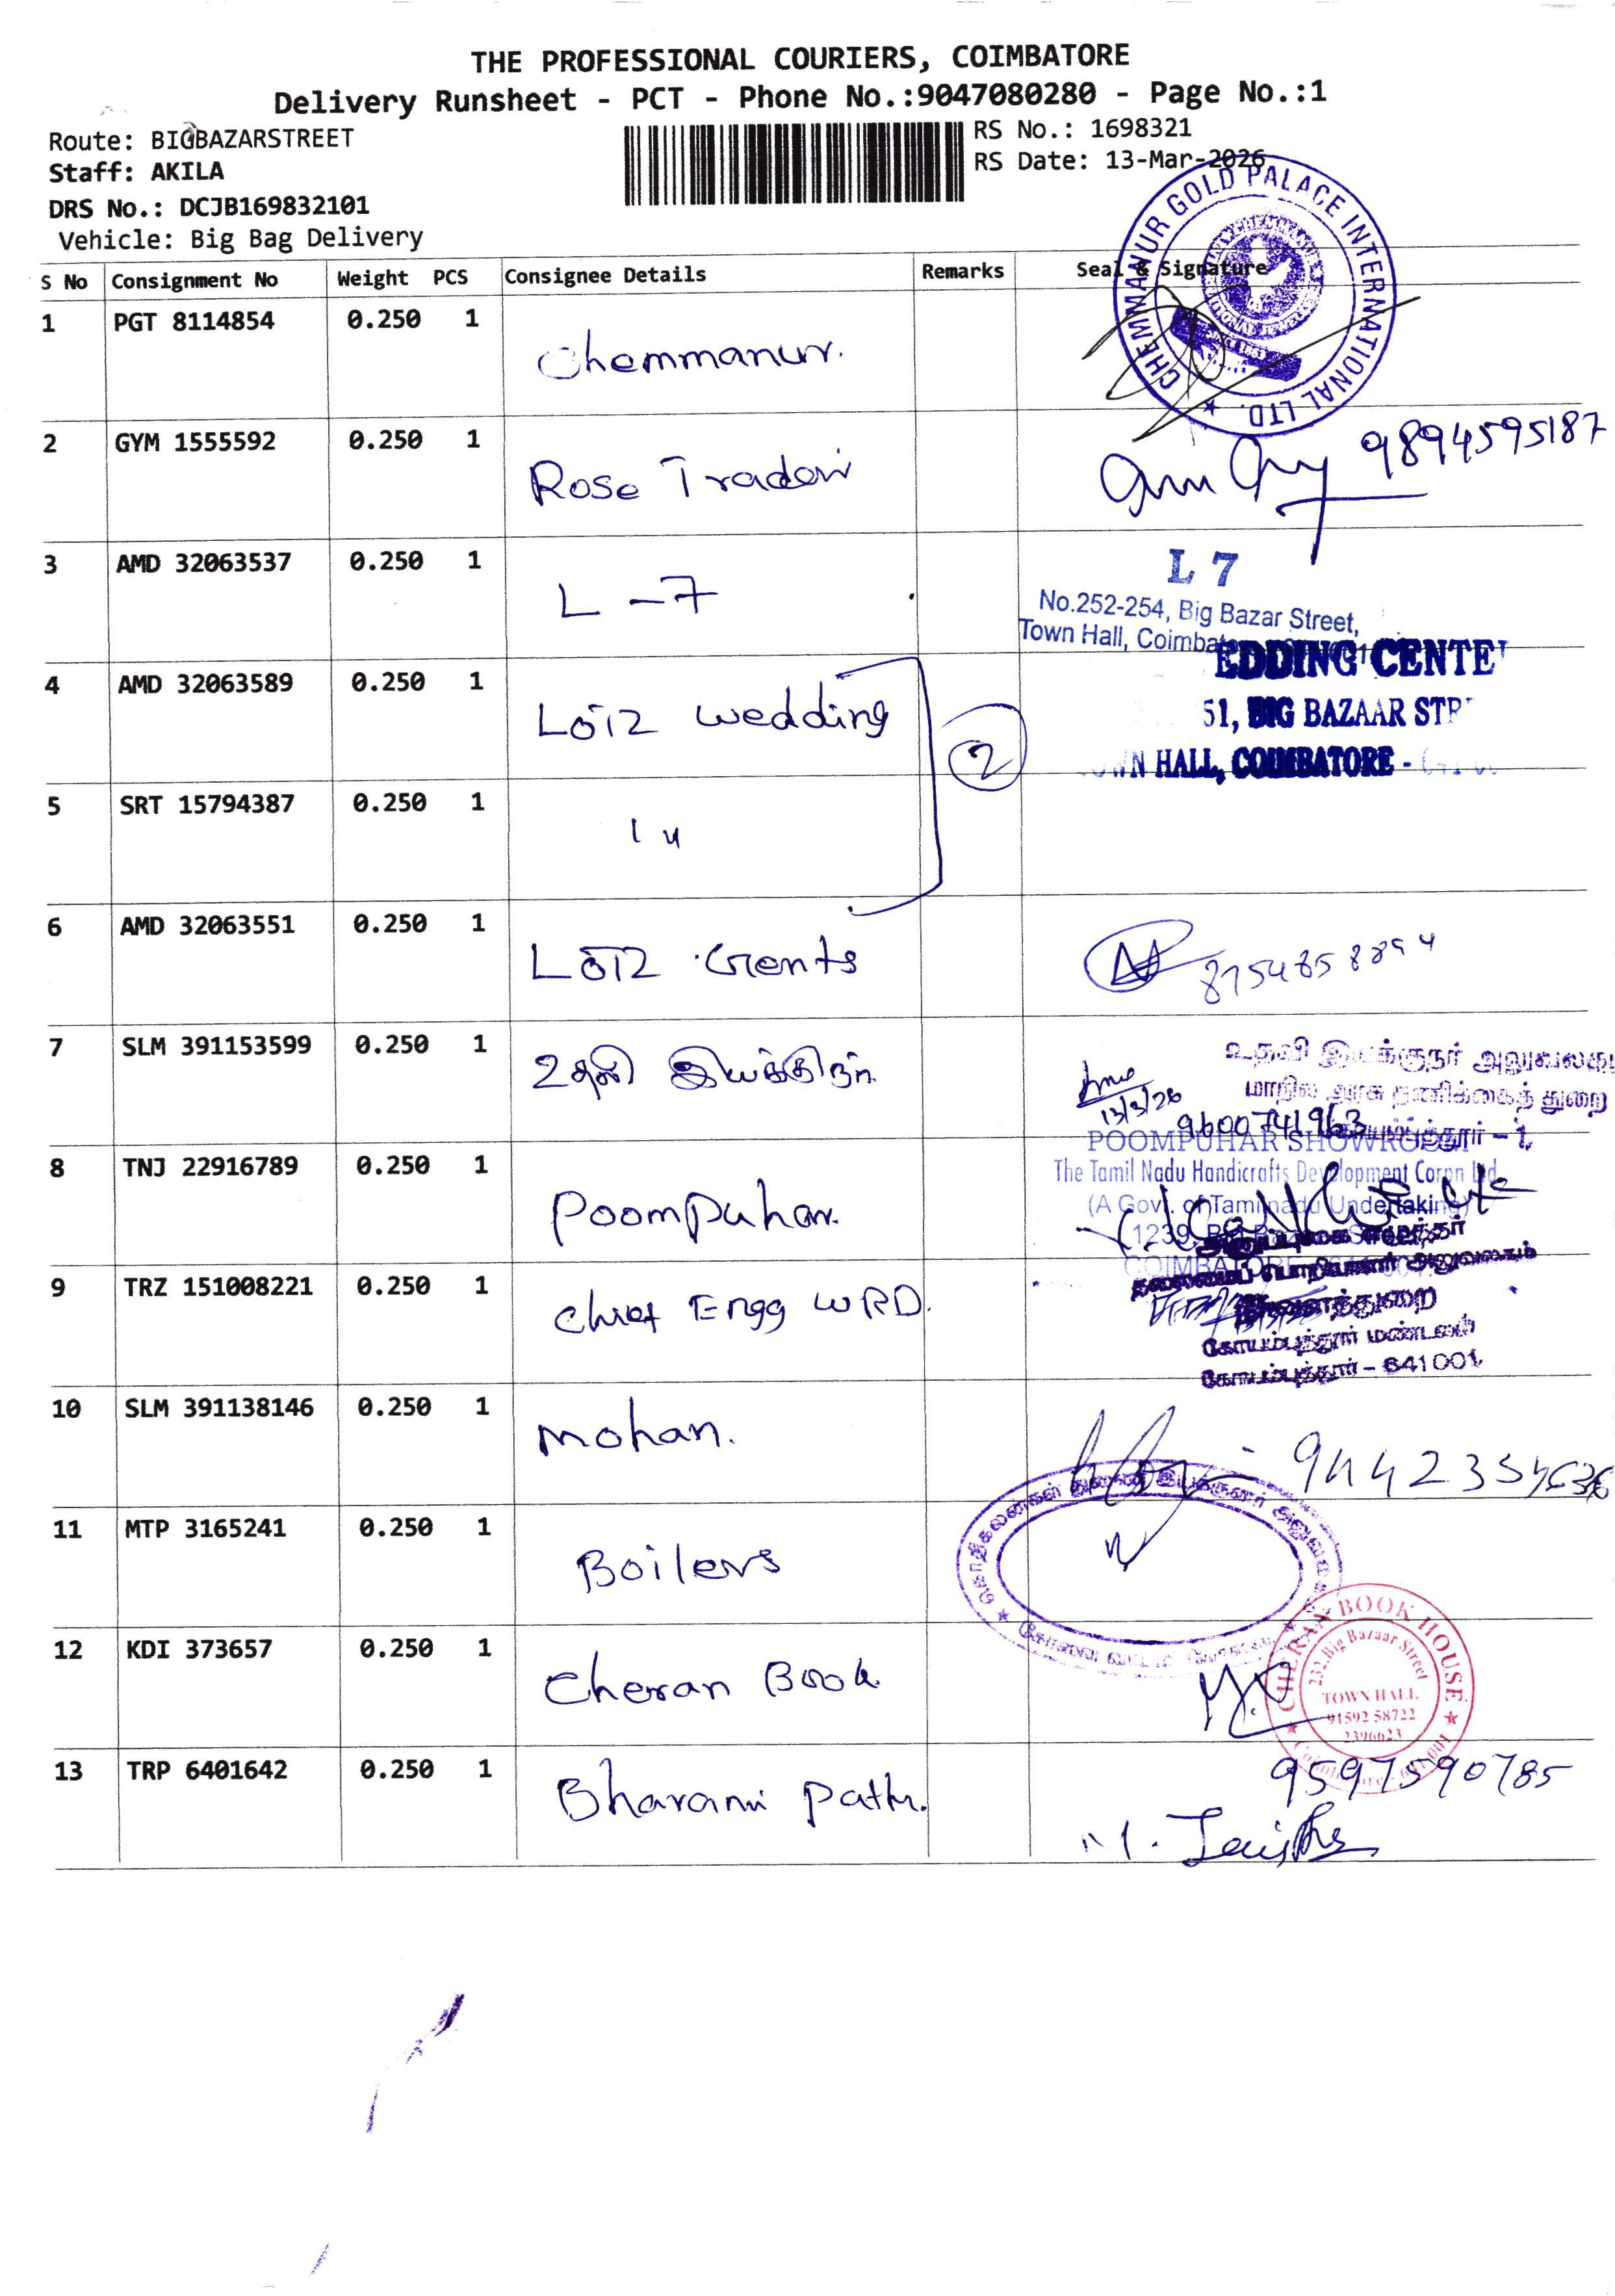 THE PROFESSIONAL COURIERS, COIMBATORE
Delivery Runsheet - PCT - Phone No.:9047080280 - Page No.:1
Route: BIGBAZARSTREET
Staff: AKILA
DRS No.: DCJB169832101
Vehicle: Big Bag Delivery
RS No.: 1698321
RS Date: 13-Mar-2026
S No Consignment No Weight PCS Consignee Details Remarks Seal & Signature
CHEMMANUR GOLD PALACE INTERNATIONAL LTD.
1 PGT 8114854 0.250 1 Chemmanur.
2 GYM 1555592 0.250 1 Rose Traders 9894595187
3 AMD 32063537 0.250 1 L-7
L 7
No.252-254, Big Bazar Street,
Town Hall,
4 AMD 32063589 0.250 1 wedding 2
EDDING CENTE
51, BIG BAZAAR STR
WN HALL, COIMBATORE -
5 SRT 15794387 0.250 1 "
6 AMD 32063551 0.250 1 Gents 8754858894
7 SLM 391153599 0.250 1 உதவி இயக்குநர்
13/3/26
9600741963
உதவி இயக்குநர் அலுவலகம்
மாநில அரசு தணிக்கைத் துறை
8 TNJ 22916789 0.250 1 Poompuhar.
POOMPUHAR SHOWROOM
The Tamil Nadu Handicrafts Development Corpn Ltd
(A Govt. of Tamilnadu Undertaking)
9 TRZ 151008221 0.250 1 Chief Engg WRD.
கோயம்புத்தூர் மண்டலம்
கோயம்புத்தூர் - 641001
10 SLM 391138146 0.250 1 Mohan.
11 MTP 3165241 0.250 1 Boilers
12 KDI 373657 0.250 1 Cheran Book
CHERAN BOOK HOUSE
232, Big Bazaar Street
TOWN HALL
91592 58722
2396623
13 TRP 6401642 0.250 1 Bharani path. 9597590785